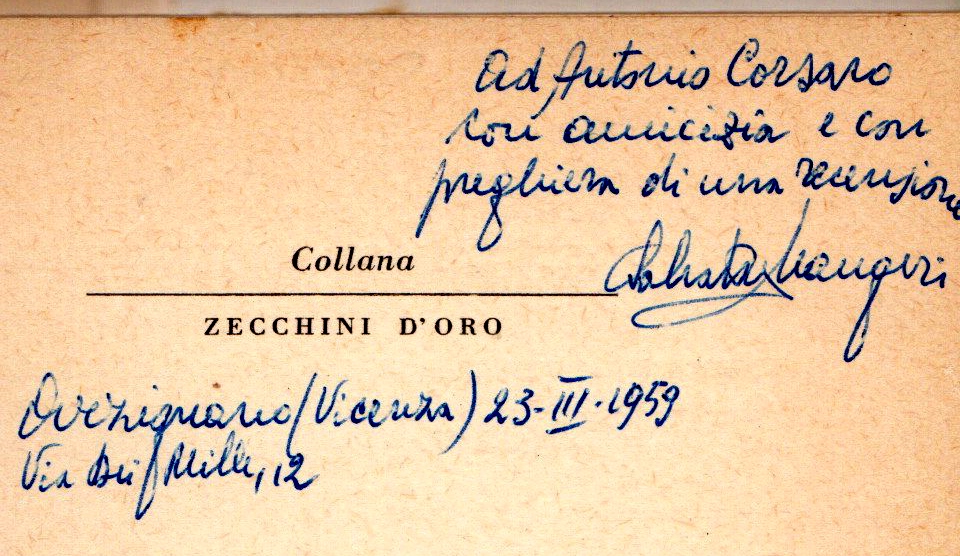 Ad Antonio Corsaro
con amicizia e con
preghiera di una recensione
Salvator Maugeri
Collana
ZECCHINI D'ORO
(Vicenza) 23-III-1959
Via Dei Mille, 12